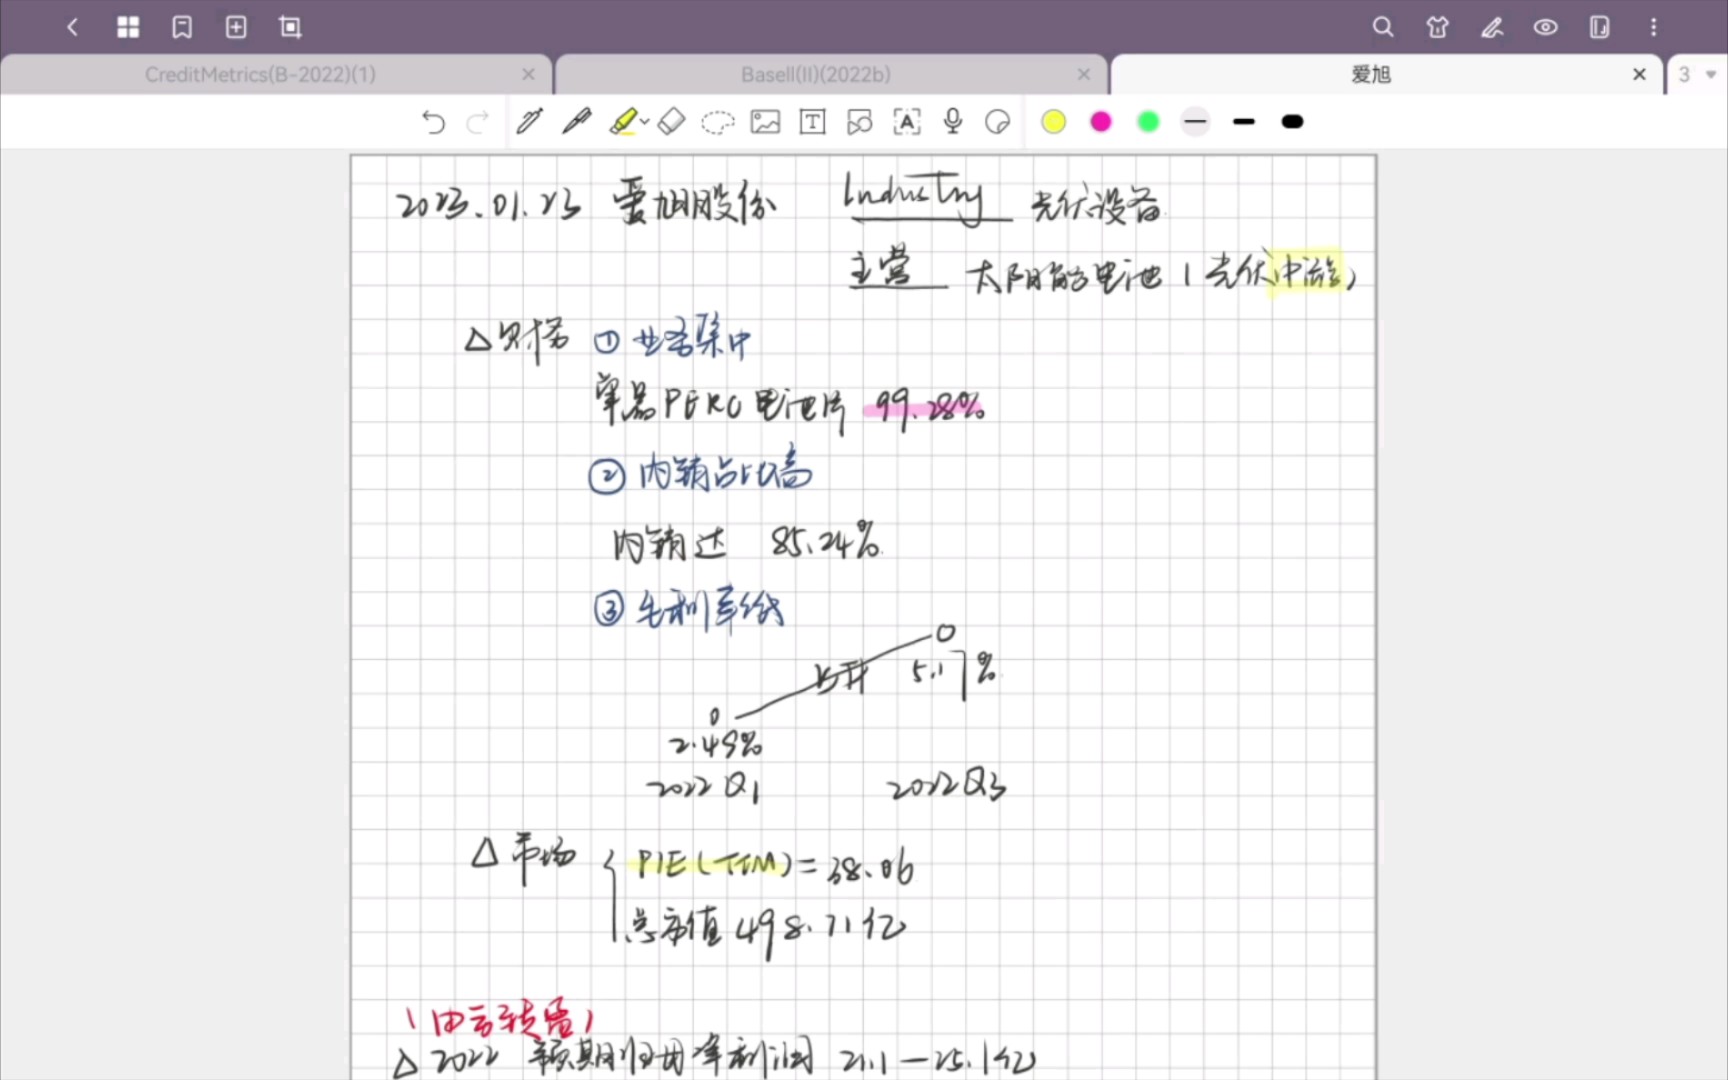 CreditMetrics(B-2022)(1)
Basell(II)(2022b)
爱旭
3
2023.01.23 爱旭股份 Industry 光伏设备
主营 太阳能电池(光伏中游)
△财务 ① 业务集中
单晶PERC电池片 99.28%
② 内销占比高
内销达 85.24%
③ 毛利率低
上升 5.17%
2.49%
2022Q1 2022Q3
△市场 P/E(TTM)=38.06
总市值 498.71亿
(由亏转盈)
△2022 预期归母净利润 21.1—25.1亿